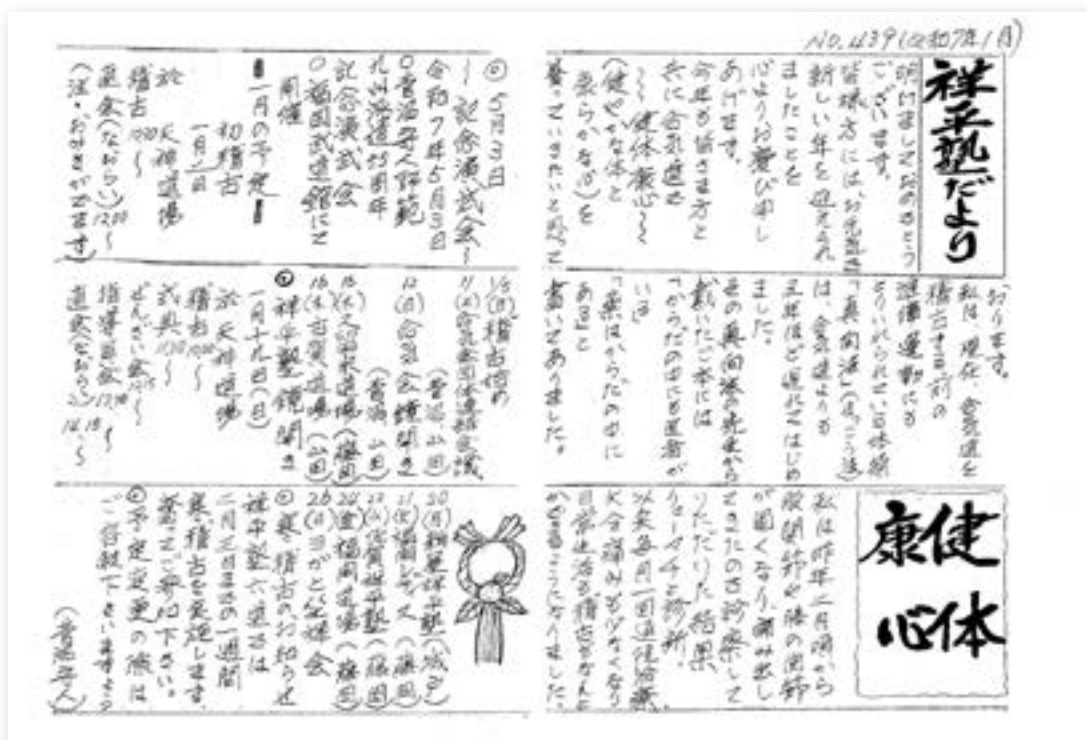 NO.439(令和7年1月)
祥平塾だより
明けましておめでとう
ございます。
皆様方には、お元気で
新しい年を迎えられ
ましたことを
心よりお慶び申し
あげます。
今年も皆さま方と
共に合気道を
〜健体康心〜
(健やかな体と
康らかな心)を
養っていきたいと思って
おります。
私は、現在、合気道を
稽古する前の
準備運動にも
とりいれられている体操
「真向法」(まっこう法)
は、合気道よりも
三年ほど遅れてはじめ
ました。
その真向法の先生から
戴いたご本には
「からだの中にも医者が
いる」
「薬はからだの中に
ある」と
書いてありました。
健体
康心
私は昨年二月頃から
股関節や膝の関節
が固くなり、痛み出し
てきたので診察して
いただいた結果、
リューマチと診断。
以来毎月一回通院治療
大分痛みもひくなくなり
日常生活も稽古もなんと
かできるようになりました。
◎5月3日
〜記念演武会〜
令和7年5月3日
○菅沼守人師範
九州派遣55周年
記念演武会
○福岡武道館にて
開催
一月の予定
初稽古
一月/日
於 天神道場
稽古 10:30〜
直会(なおらい)12:00〜
(注・おぬきがでます)
1/5(日)稽古始め
11(土)合気会鏡開き
(菅沼 山田)
12(日)合気会鏡開き
(菅沼 山田)
16(木)古賀道場(山田)
◎祥平塾鏡開き
一月十九日(日)
於 天神道場
稽古 10:00〜
式典 11:30〜
ぜんざい会 12:15〜
指導員会
直会(なおらい)
24(金)福岡道場(藤岡)
◎寒稽古のお知らせ
祥平塾六道場は
一週間
寒稽古を実施します。
奮ってご参加下さい。
◎予定変更の際は
ご容赦下さいますよう
(菅沼守人)